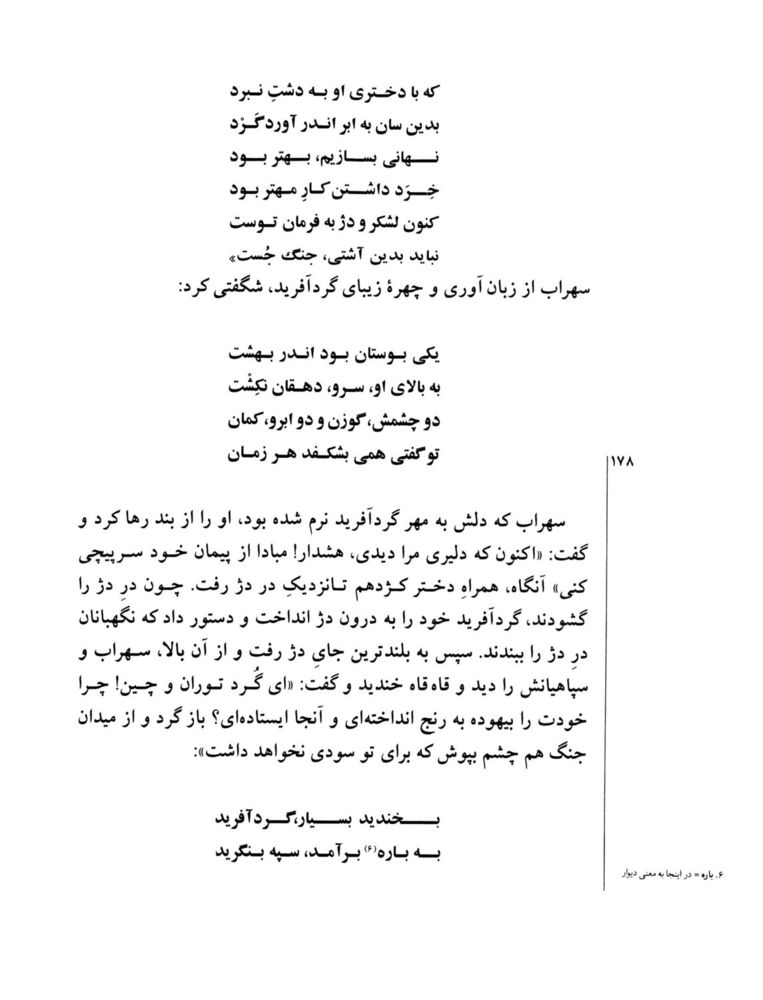 که با دختری او به دشتِ نبرد
بدین سان به ابر اندر آورد گَرْد
نهانی بسازیم، بهتر بود
خِرَد داشتن کارِ مهتر بود
کنون لشکر و دژ به فرمان توست
نباید بدین آشتی، جنگ جُست»
سهراب از زبان آوری و چهرهٔ زیبای گردآفرید، شگفتی کرد:
یکی بوستان بود اندر بهشت
به بالای او، سرو، دهقان نکِشْت
دو چشمش، گوزن و دو ابرو، کمان
تو گفتی همی بشکفد هر زمان
۱۷۸
سهراب که دلش به مهر گردآفرید نرم شده بود، او را از بند رها کرد و
گفت: «اکنون که دلیری مرا دیدی، هشدار! مبادا از پیمان خود سرپیچی
کنی» آنگاه، همراهِ دختر کژدهم تا نزدیکِ در دژ رفت. چون درِ دژ را
گشودند، گردآفرید خود را به درون دژ انداخت و دستور داد که نگهبانان
درِ دژ را ببندند. سپس به بلندترین جایِ دژ رفت و از آن بالا، سهراب و
سپاهیانش را دید و قاه قاه خندید و گفت: «ای گُرد توران و چین! چرا
خودت را بیهوده به رنج انداخته‌ای و آنجا ایستاده‌ای؟ باز گرد و از میدان
جنگ هم چشم بپوش که برای تو سودی نخواهد داشت»:
بخندید بسیار، گردآفرید
به باره(۶) برآمد، سپه بنگرید
۶. باره = در اینجا به معنی دیوار